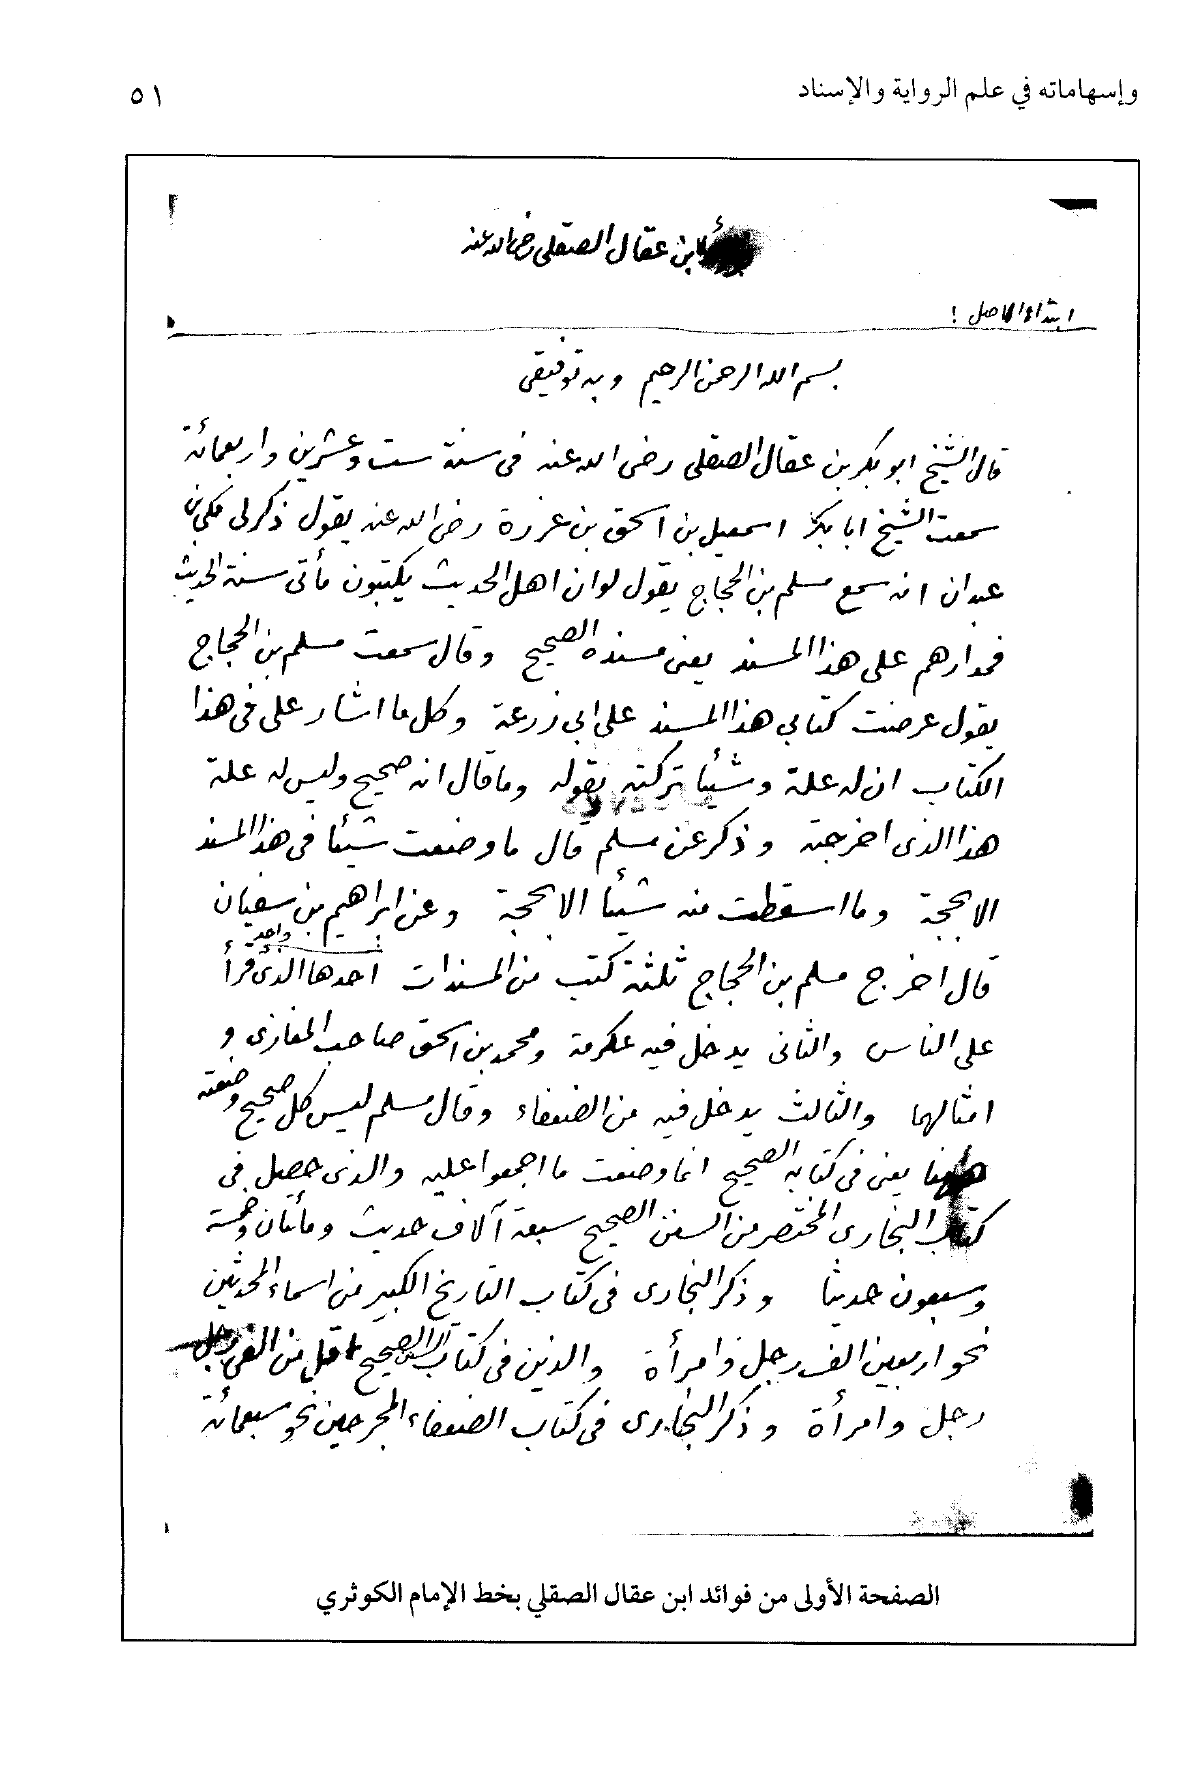 وإسهاماته في علم الرواية والإسناد
٥١
لابن عقال الصقلى رضى الله عنه
ابتداء الاصل !
بسم الله الرحمن الرحيم وبه توفيقى
قال الشيخ ابو بكر بن عقال الصقلى رضى الله عنه فى سنة ست وعشرين واربعمائة
سمعت الشيخ ابا بكر اسمعيل بن اسحق بن عزرة رضى الله عنه يقول ذكر لى مكى بن
عبدان انه سمع مسلم بن الحجاج يقول لو ان اهل الحديث يكتبون مأتى سنة الحديث
فمدارهم على هذا المسند يعنى مسنده الصحيح وقال سمعت مسلم بن الحجاج
يقول عرضت كتابي هذا المسند على ابى زرعة وكل ما اشار على فى هذا
الكتاب ان له علة وشيئا تركته بقوله وما قال انه صحيح وليس له علة
هذا الذى اخرجته وذكر عن مسلم قال ما وضعت شيئا فى هذا المسند
الا بحجة وما اسقطت منه شيئا الا بحجة وعن ابراهيم بن سفيان
واحد
قال اخرج مسلم بن الحجاج ثلثة كتب من المسندات احدها الذى قرأ
على الناس والثانى يدخل فيه عكرمة ومحمد بن اسحق صاحب المغازى و
امثالهما والثالث يدخل فيه من الضعفاء وقال مسلم ليس كل صحيح وضعته
ههنا يعنى فى كتابه الصحيح انما وضعت ما اجمعوا عليه والذى حصل فى
كتاب البخارى المختصر من السنن الصحيح سبعة آلاف حديث ومأتان وخمسة
وسبعون حديثا وذكر البخارى فى كتاب التاريخ الكبير من اسماء المحدثين
نحو اربعين الف رجل وامرأة والذين فى كتاب السنن الصحيح اقل من الفى رجل
رجل وامرأة وذكر البخارى فى كتاب الضعفاء المجرحين نحو سبعمائة
الصفحة الأولى من فوائد ابن عقال الصقلي بخط الإمام الكوثري